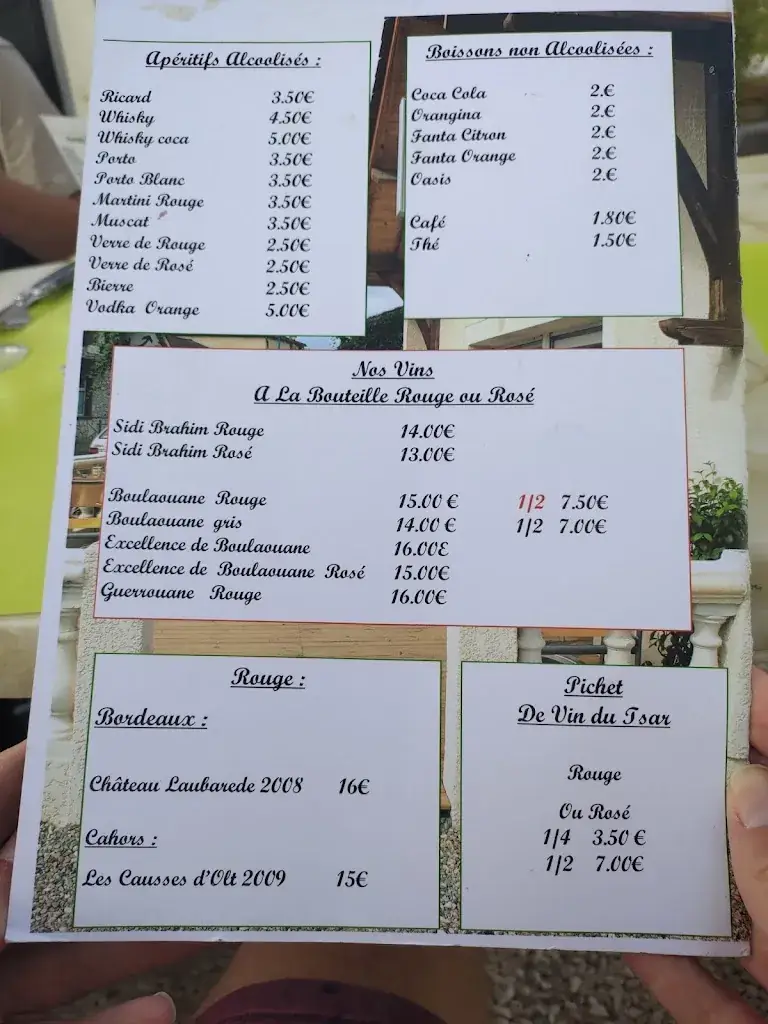 Apéritifs Alcoolisés :
Ricard 3.50€
Whisky 4.50€
Whisky coca 5.00€
Porto 3.50€
Porto Blanc 3.50€
Martini Rouge 3.50€
Muscat 3.50€
Verre de Rouge 2.50€
Verre de Rosé 2.50€
Bierre 2.50€
Vodka Orange 5.00€
Boissons non Alcoolisées :
Coca Cola 2.€
Orangina 2.€
Fanta Citron 2.€
Fanta Orange 2.€
Oasis 2.€
Café 1.80€
Thé 1.50€
Nos Vins
A La Bouteille Rouge ou Rosé
Sidi Brahim Rouge 14.00€
Sidi Brahim Rosé 13.00€
Boulaouane Rouge 15.00 € 1/2 7.50€
Boulaouane gris 14.00 € 1/2 7.00€
Excellence de Boulaouane 16.00£
Excellence de Boulaouane Rosé 15.00€
Guerrouane Rouge 16.00€
Rouge :
Bordeaux :
Château Laubarede 2008 16€
Cahors :
Les Causses d'Olt 2009 15€
Pichet
De Vin du Tsar
Rouge
Ou Rosé
1/4 3.50 €
1/2 7.00€